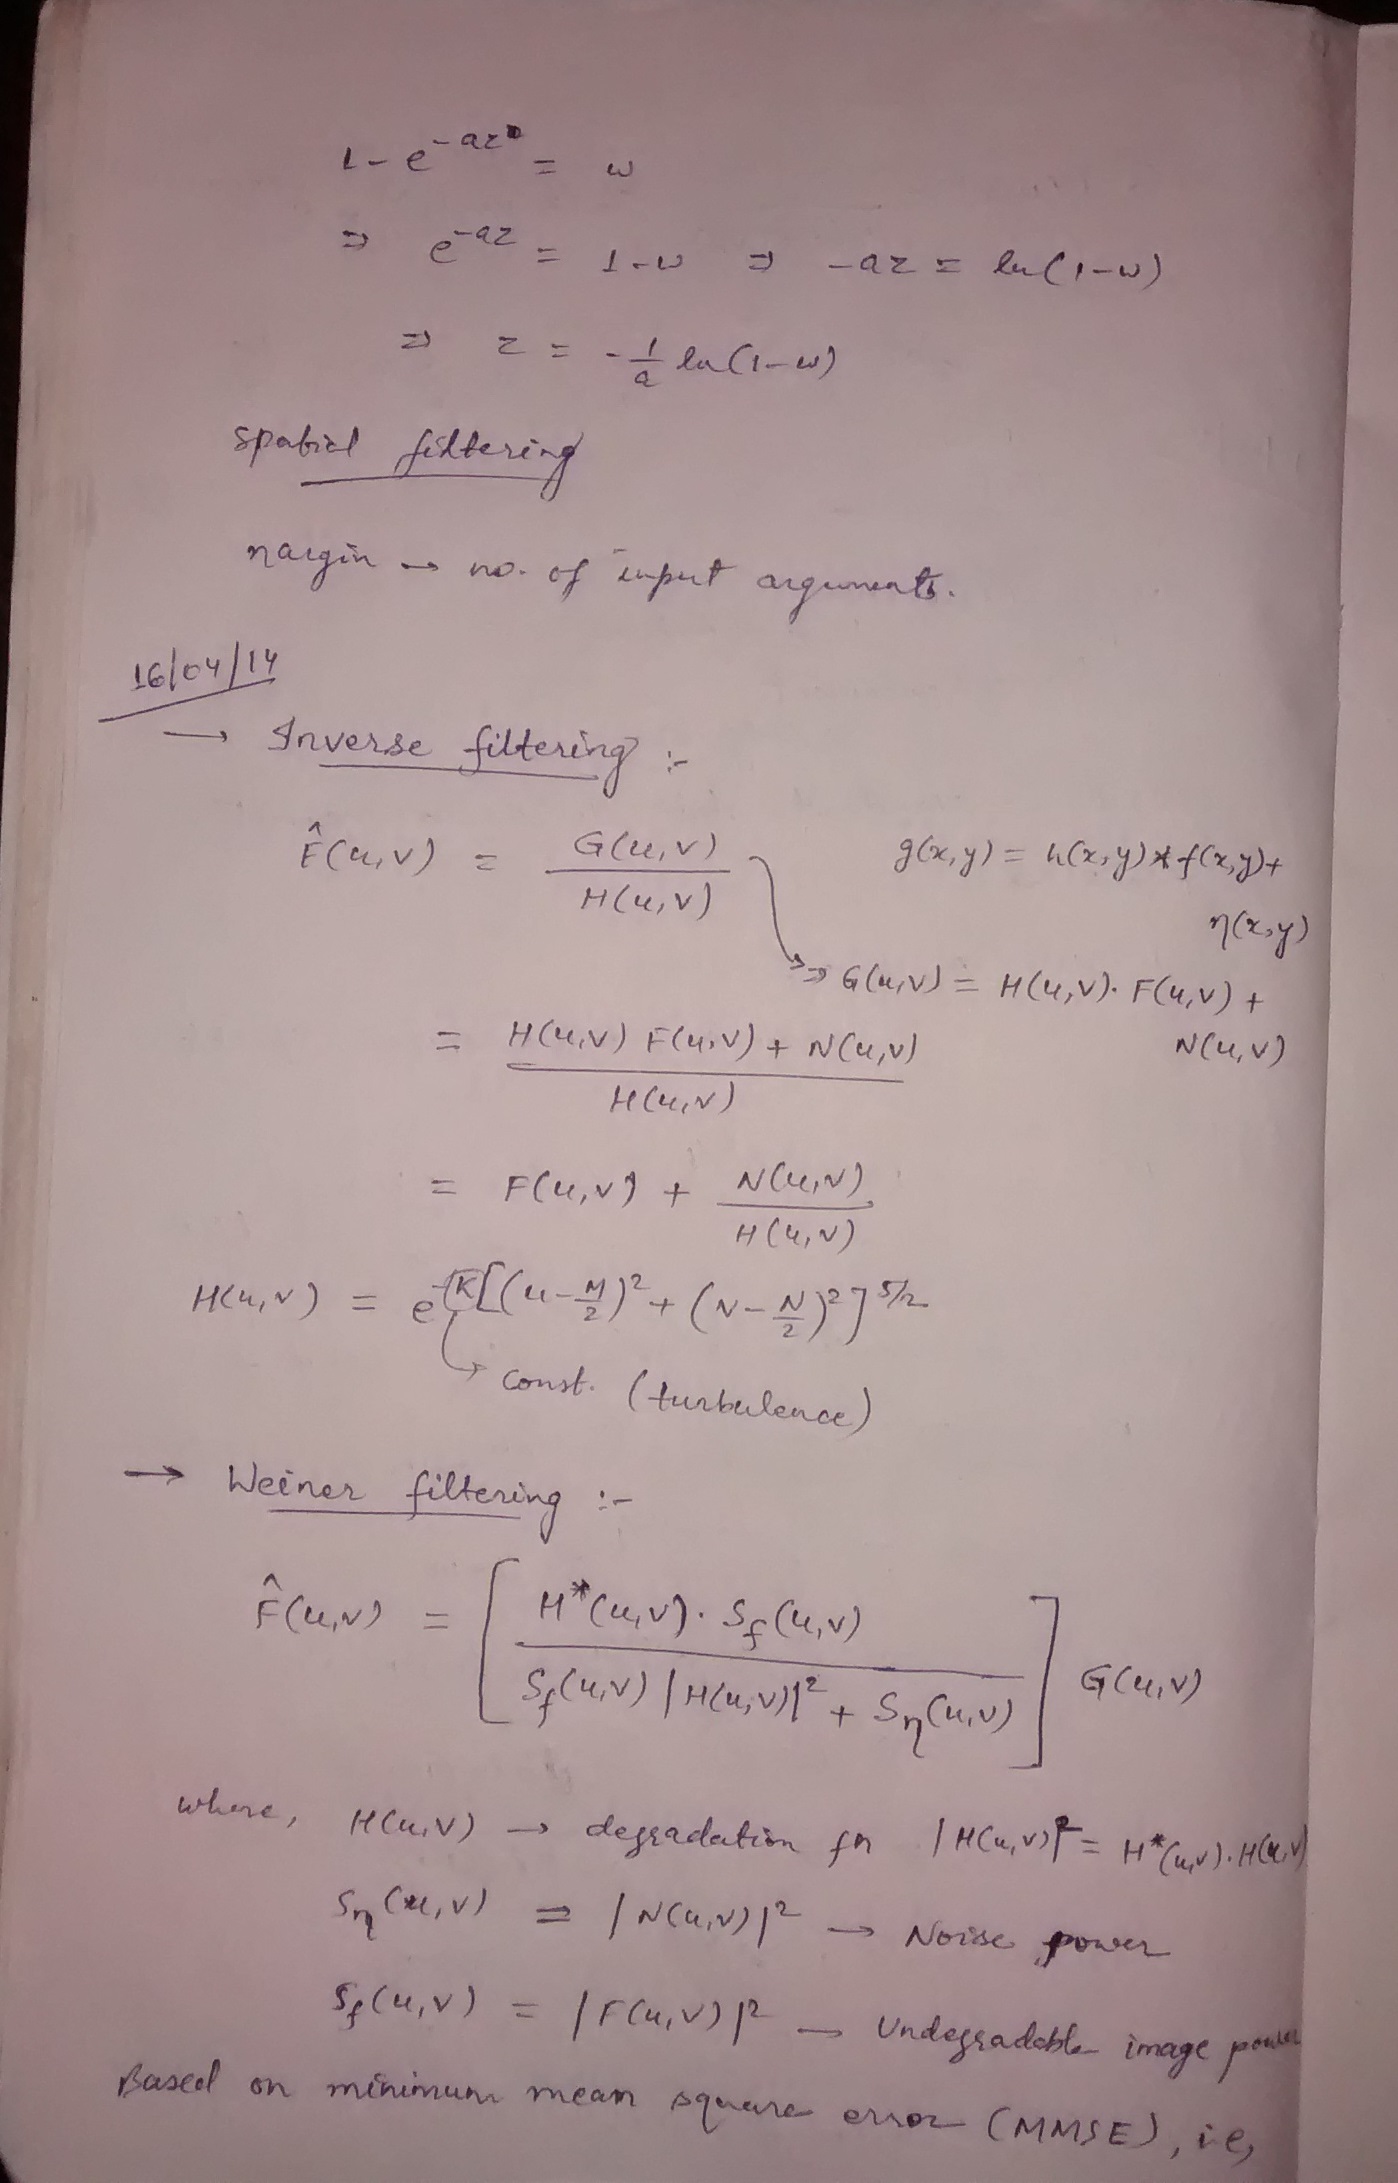 1 - e^-az² = w
⇒ e^-az = 1-w ⇒ -az = ln(1-w)
⇒ z = -1/a ln(1-w)
spatial filtering
nargin → no. of input arguments.
16/04/14
→ Inverse filtering :-
F̂(u,v) = G(u,v)/H(u,v) g(x,y) = h(x,y)*f(x,y)+ η(x,y)
→ G(u,v) = H(u,v).F(u,v) + N(u,v)
= H(u,v) F(u,v) + N(u,v) / H(u,v)
= F(u,v) + N(u,v)/H(u,v)
H(u,v) = e^-k[(u-M/2)² + (v-N/2)²]^5/2
→ const. (turbulence)
→ Weiner filtering :-
F̂(u,v) = [H*(u,v). S_f(u,v) / S_f(u,v) |H(u,v)|² + S_η(u,v)] G(u,v)
where, H(u,v) → degradation fn |H(u,v)|² = H*(u,v).H(u,v)
S_η(u,v) = |N(u,v)|² → Noise power
S_f(u,v) = |F(u,v)|² → Undegradable image power
Based on minimum mean square error (MMSE), i.e,